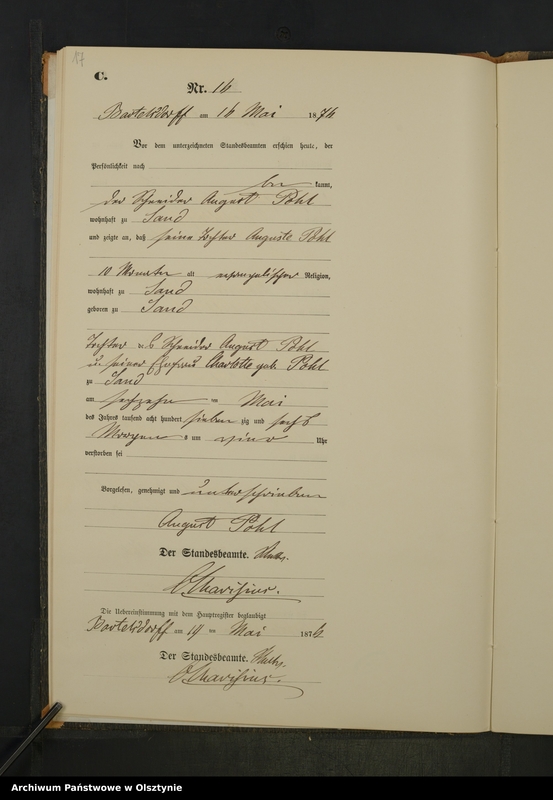 17
C.
Nr. 16
Bartelsdorff am 16 Mai 1876
Vor dem unterzeichneten Standesbeamten erschien heute, der
Persönlichkeit nach
be kannt,
der Schneider August Pohl
wohnhaft zu Sand
und zeigte an, daß seine Tochter Auguste Pohl
10 Monate alt evangelischer Religion,
wohnhaft zu Sand
geboren zu Sand
Tochter des Schneider August Pohl
u seiner Ehefrau Charlotte geb. Pohl
zu Sand
am sechzehn ten Mai
des Jahres tausend acht hundert sieben zig und sechs
Morgens um Uhr
verstorben sei
Vorgelesen, genehmigt und unterschrieben
August Pohl
Der Standesbeamte.
Die Uebereinstimmung mit dem Hauptregister beglaubigt
Bartelsdorff am 19 ten Mai 1876
Der Standesbeamte.
Archiwum Państwowe w Olsztynie